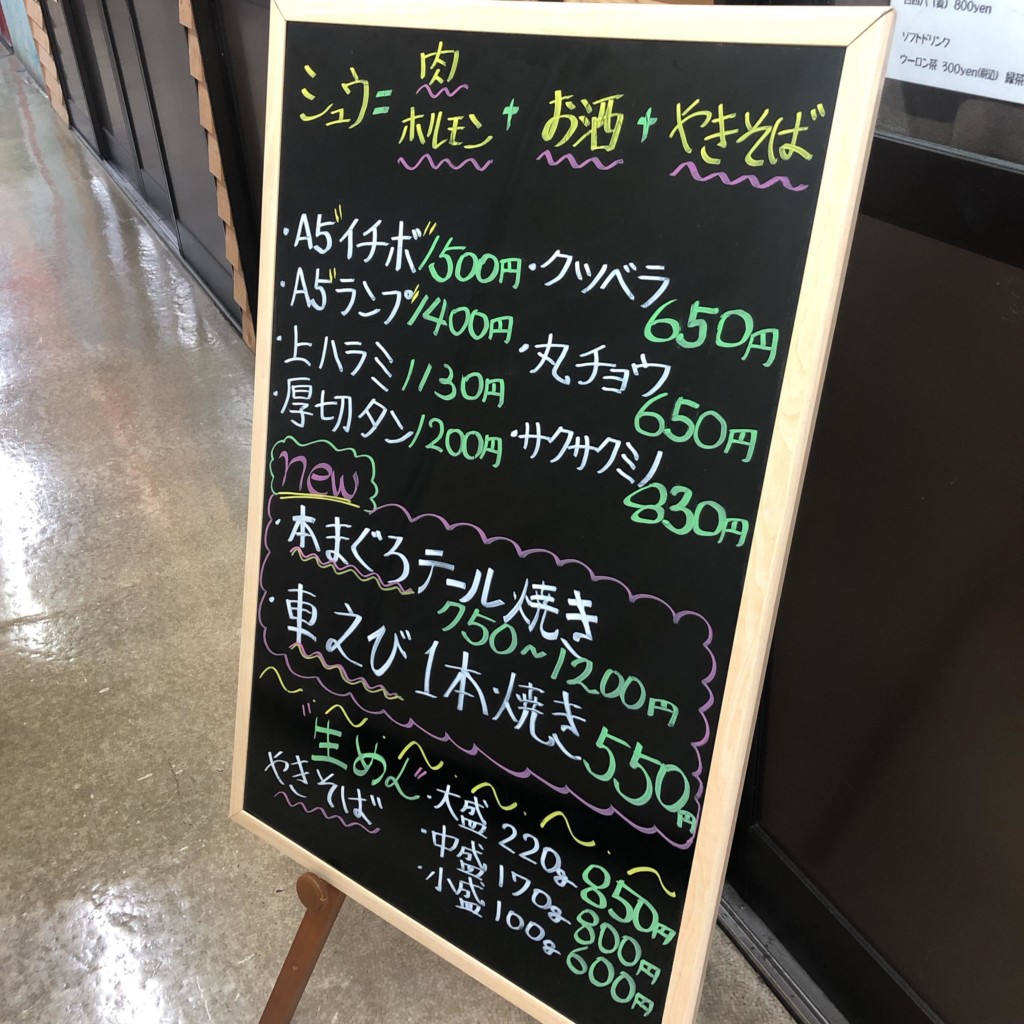 シュウ=肉ホルモン+お酒+やきそば
・A5"イチボ"1500円
・A5"ランプ"1400円
・上ハラミ1130円
・厚切タン1200円
・クツベラ
650円
・丸チョウ
650円
・サクサクミノ
830円
new
・本まぐろテール焼き
750~1200円
・車えび1本焼き550円
"生めん"
やきそば
・大盛 220g 850円
・中盛 170g 800円
・小盛 100g 600円
800yen
ソフトドリンク
ウーロン茶 300yen(税込) 緑茶